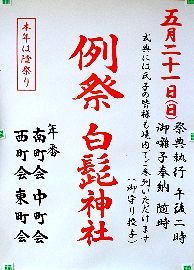 五月二十一日(日)
祭典執行 午後二時
御囃子奉納 随時
式典には氏子の皆様も境内でご参列いただけます
(お守り授与)
例祭 白髭神社
本年は陰祭り
年番
南町会 中町会
西町会 東町会